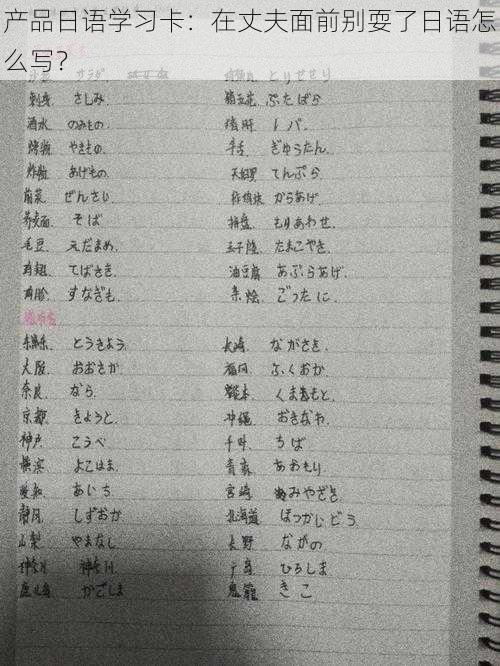 产品日语学习卡：在丈夫面前别耍了日语怎
么写？
サラダ とりせせり
刺身 さしみ ぶたばら
酒水 のみもの レバ
やきもの ぎゅうたん
炸物 あげもの てんぷら
前菜 ぜんさい からあげ
荞麦面 そば 拼盘 もりあわせ
毛豆 えだまめ 玉子烧 たまごやき
鸡翅 てばさき 油豆腐 あぶらあげ
すなぎも 杂烩 ごったに
东京 とうきょう 长崎 ながさき
大阪 おおさか 福冈 ふくおか
奈良 なら 熊本 くまもと
京都 きょうと 冲绳 おきなわ
神户 こうべ 千叶 ちば
横滨 よこはま 青森 あおもり
爱知 あいち 宫崎 みやざき
静冈 しずおか 北海道 ほっかいどう
山梨 やまなし 长野 ながの
神奈川 神奈川 广岛 ひろしま
鹿儿岛 かごしま きこ